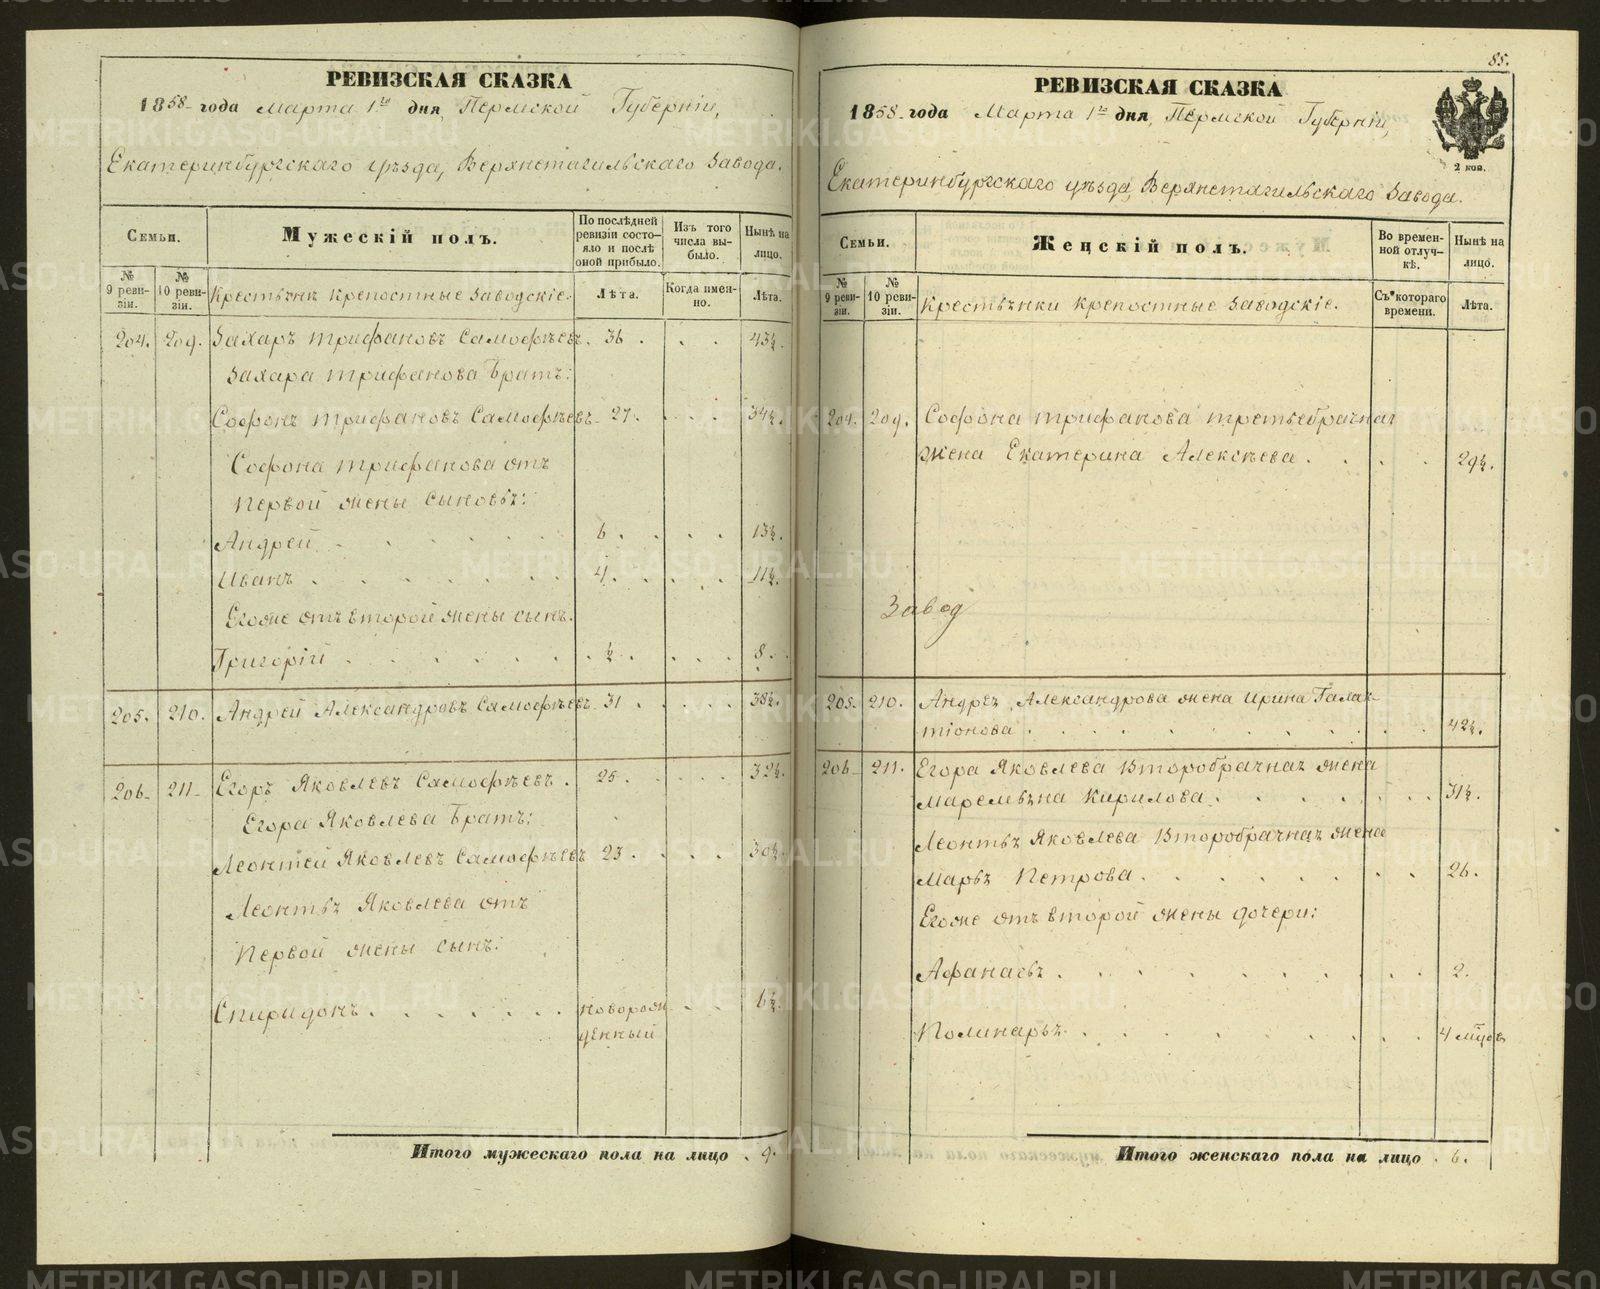 РЕВИЗСКАЯ СКАЗКА
1858 года Марта 1го дня, Пермской Губерніи,
Екатеринбургскаго уѣзда, Верхнетагильскаго Завода.
Семьи.
Мужескій полъ.
По послѣдней ревизіи состояло и послѣ оной прибыло.
Изъ того числа выбыло.
Нынѣ на лицо.
№ 9 ревизіи.
№ 10 ревизіи.
Крестьяне крепостные Заводскіе.
Лѣта.
Когда именно.
Лѣта.
204. 209. Захаръ Трифановъ Самофѣевъ. 36. 43½.
Захара Трифанова Братъ:
Софонъ Трифановъ Самофѣевъ. 27. 34½.
Софона Трифанова отъ
первой жены сыновья:
Андрей 6. 13½.
Иванъ 4. 11½.
Егоже отъ второй жены сынъ.
Григорій ½. 8.
205. 210. Андрей Александровъ Самофѣевъ 31. 38½.
206. 211. Егоръ Яковлевъ Самофѣевъ. 25. 32½.
Егора Яковлева Братъ:
Леонтей Яковлевъ Самофѣевъ 23. 30½.
Леонтья Яковлева отъ
первой жены сынъ:
Спиридонъ новорож
денный 6½.
Итого мужескаго пола на лицо 9.
85.
РЕВИЗСКАЯ СКАЗКА
1858 года Марта 1го дня, Пермской Губерніи,
2 коп.
Екатеринбургскаго уѣзда, Верхнетагильскаго Завода.
Семьи.
Женскій полъ.
Во временной отлучкѣ.
Нынѣ на лицо.
№ 9 ревизіи.
№ 10 ревизіи.
Крестьянки крепостные Заводскіе.
Съ котораго времени.
Лѣта.
204. 209. Софона Трифанова третьебрачная
жена Екатерина Алексѣева. 29½.
Завод
205. 210. Андрея Александрова жена Ирина Галак
тіонова 42½.
206. 211. Егора Яковлева Второбрачная жена
Маремьяна Кирилова. 31½.
Леонтья Яковлева Второбрачная жена
Марья Петрова. 26.
Егоже отъ второй жены дочери:
Афанасья 2.
Полинарья 4 мцов
Итого женскаго пола на лицо 6.
METRIKI.GASO-URAL.RU